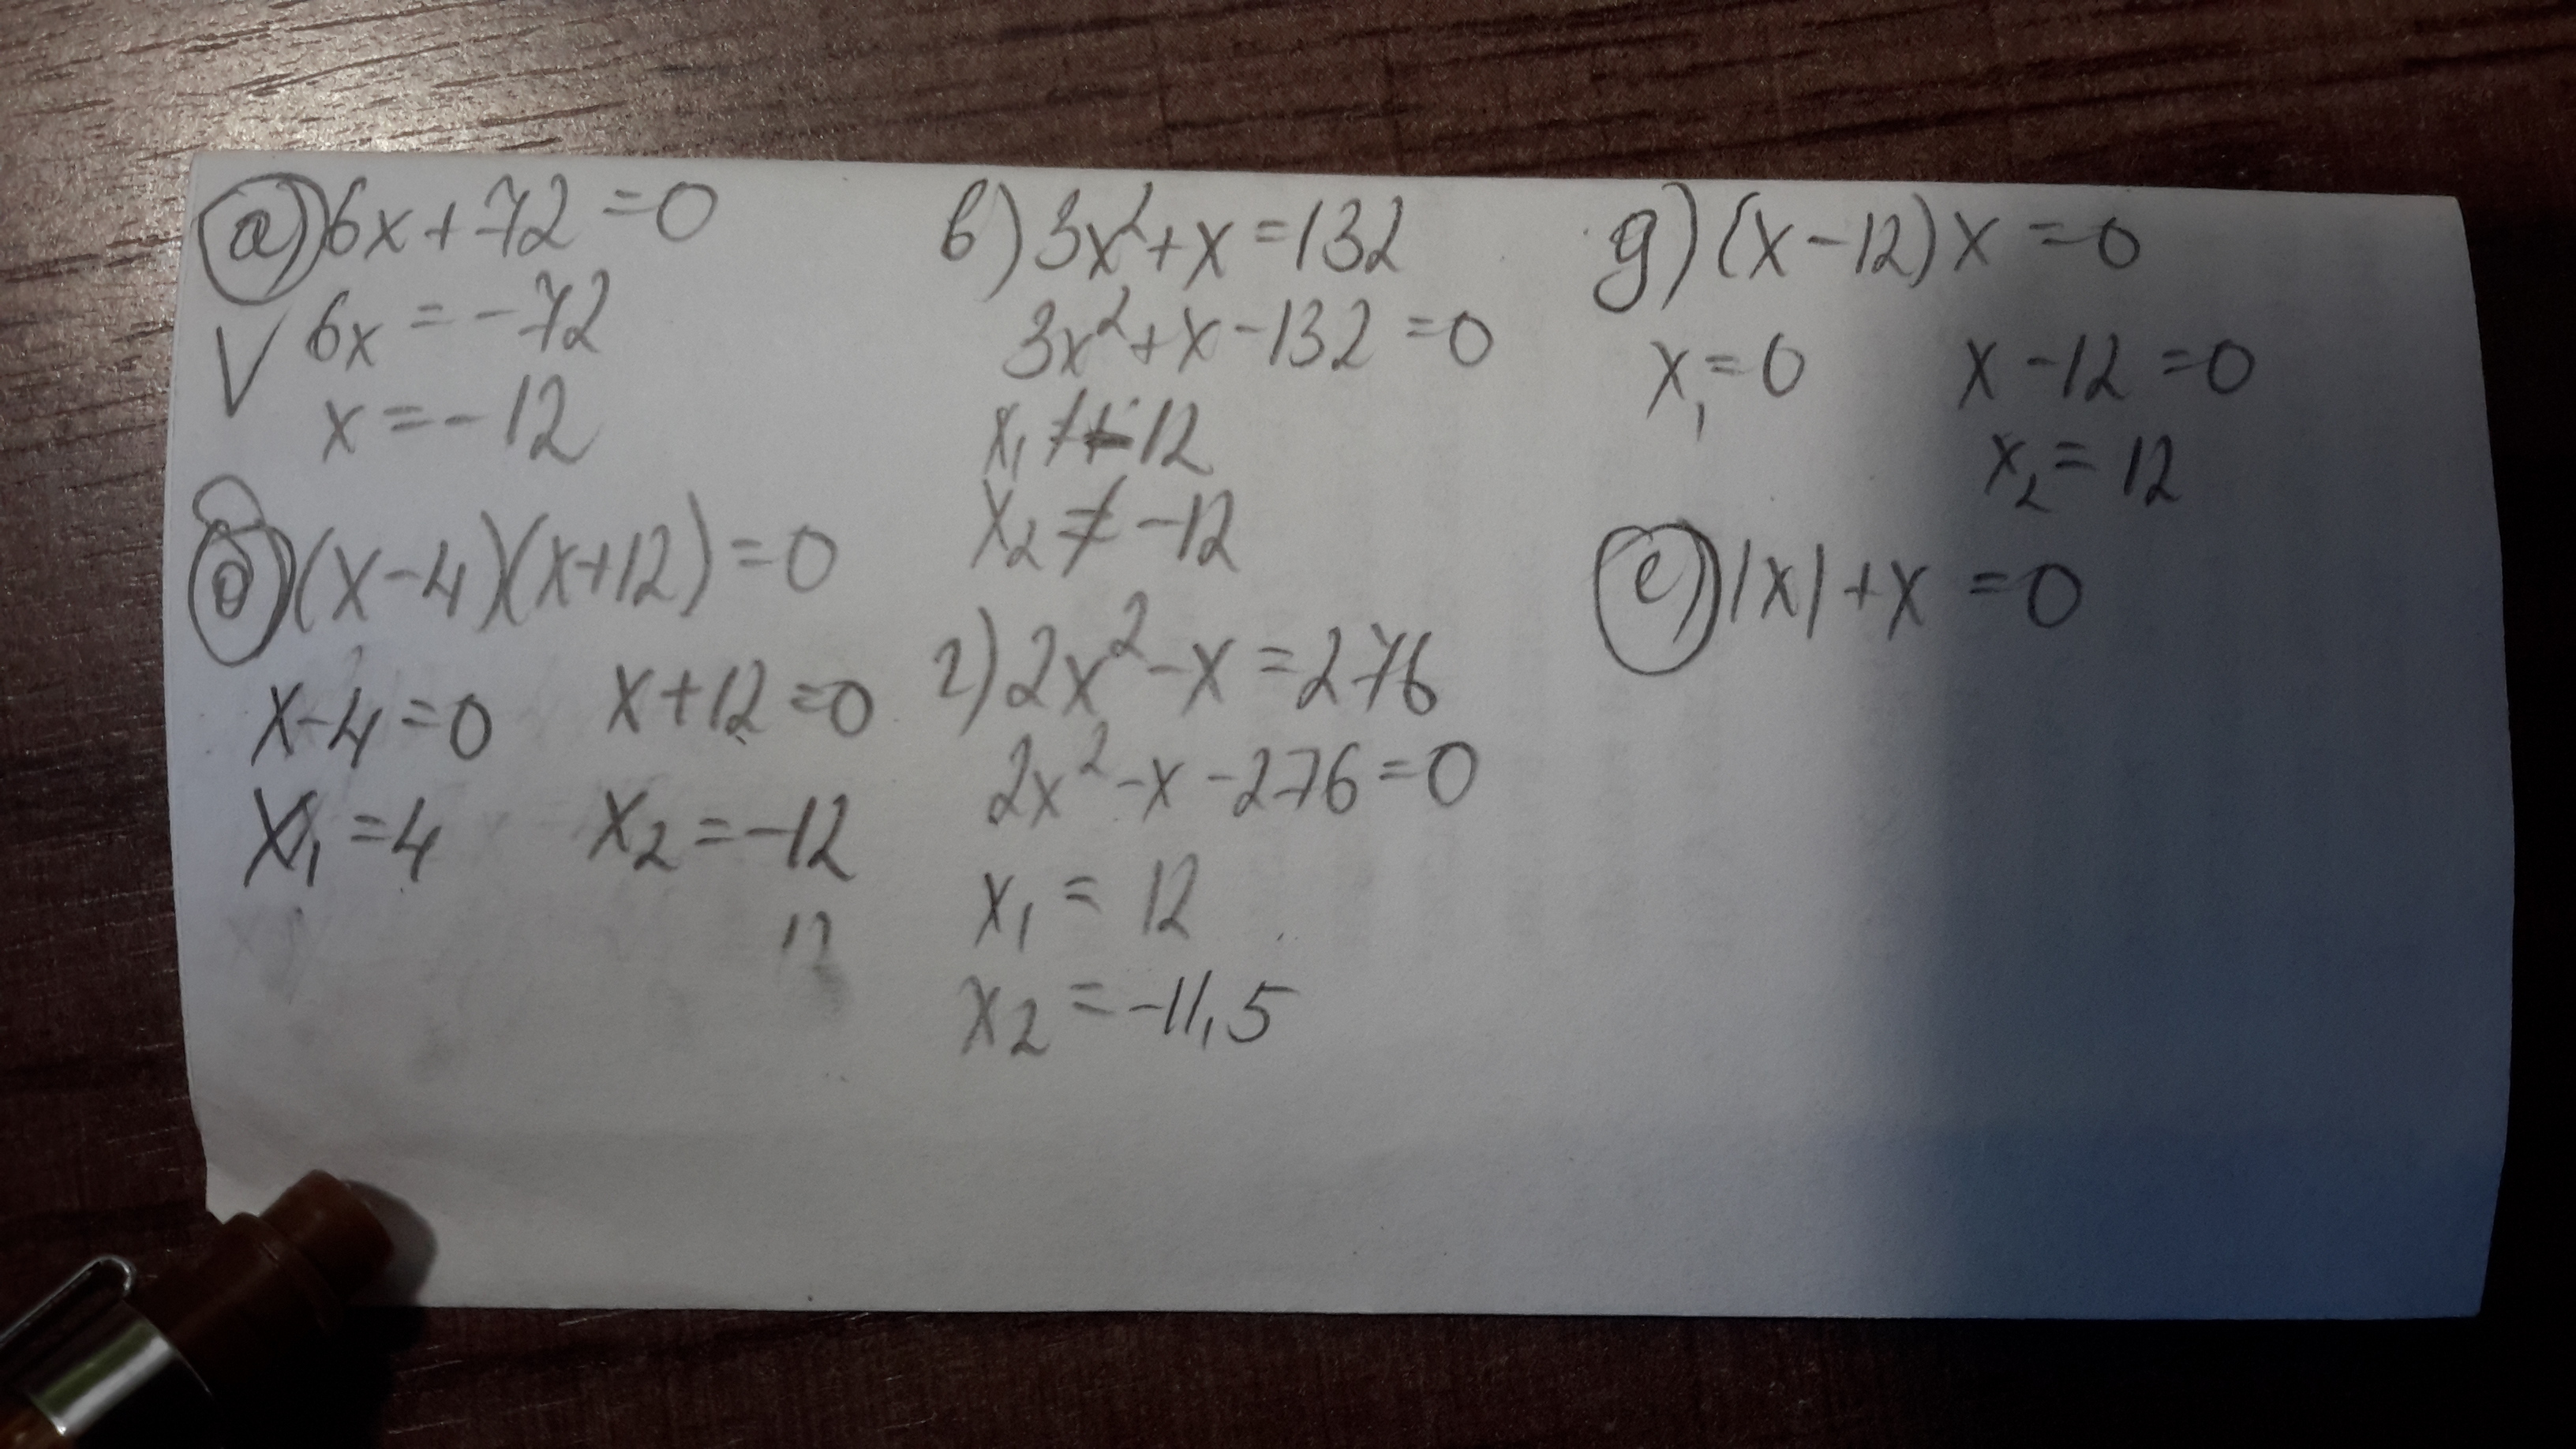 а) 6x + 72 = 0
V 6x = -72
x = -12
б) (x-4)(x+12) = 0
x-4=0 x+12=0
x₁ = 4 x₂ = -12
12
в) 3x²+x=132
3x²+x-132=0
x₁ ≠ 12
x₂ ≠ -12
г) 2x²-x=276
2x²-x-276=0
x₁ = 12
x₂ = -11,5
g) (x-12)x=0
x₁=0 x-12=0
x₂=12
е) |x|+x=0